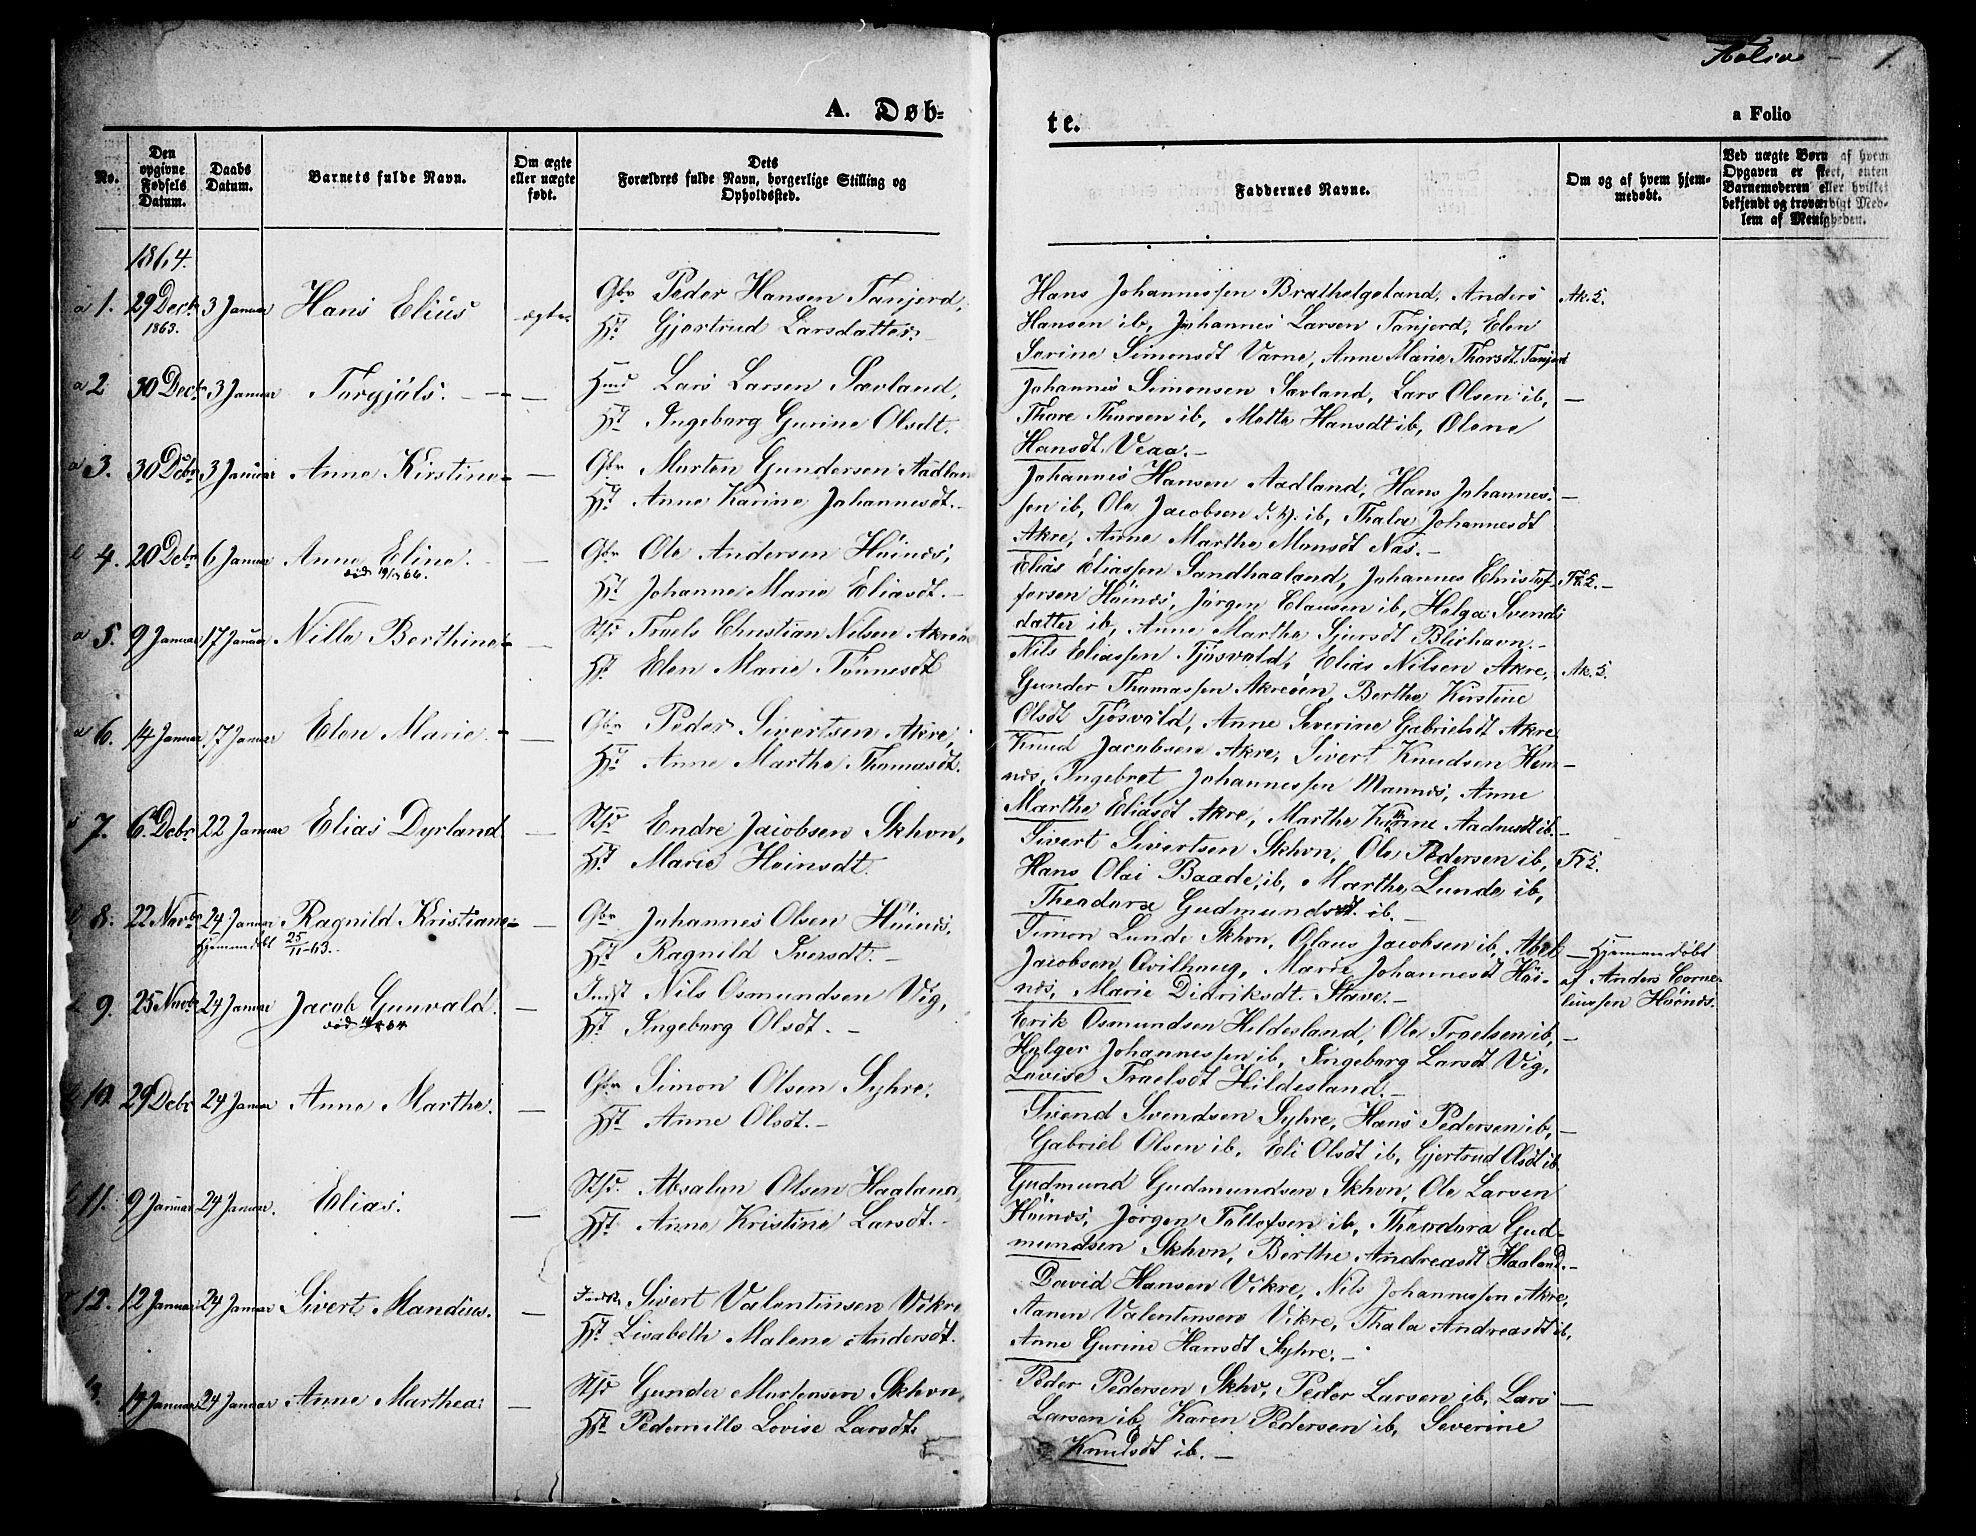 Folio 1.
A. Døb=
te.
a Folio
No.
Den opgivne Fødsels Datum.
Daabs Datum.
Barnets fulde Navn.
Om ægte eller uægte født.
Dets Forældres fulde Navn, borgerlige Stilling og Opholdssted.
Faddernes Navne.
Om og af hvem hjemmedøbt.
Ved uægte Børn af hvem Opgaven er skeet, enten Barnemoderen eller hvilket bekjendt og troværdigt Medlem af Menigheden.
1864.
a 1. 29 Decbr 1863. 3 Januar Hans Elius ægte.
Gbr Peder Hansen Tanjord,
Hst Gjertrud Larsdatter.
Hans Johannessen Brathelgeland, Anders
Hansen ib, Johannes Larsen Tanjord, Elen
Serine Simonsdt Varne, Anne Marie Thorsdt Tanjord
Ak. 5.
a 2 30 Decbr 3 Januar Torgjuls. —
Hmd Lars Larsen Sævland,
Hst Ingeborg Gurine Olsdt.
Johannes Simonsen Sævland, Lars Olsen ib, —
Thore Thorsen ib, Mette Hansdt ib, Olene
Hansdt Veaa. —
a 3. 30 Debr 3 Januar Anne Kirstine —
Gbr Morten Gundersen Aadland
Hst Anne Karine Johannesdt. —
Johannes Hansen Aadland, Hans Johannes- —
sen ib, Ole Jacobsen ib, Thala Johannesdt
Akre, Anne Marthe Monsdt Næs. —
4. 20 Debr 6 Januar Anne Eline. —
død 19/ 66.
Gbr Ole Andersen Høinæs,
Hst Johanne Marie Eliasdt. —
Elias Eliassen Sandhaaland, Johannes Christof-
fersen Høinæs, Jørgen Clausen ib, Helga Svends
datter ib, Anne Marthe Sjursdt Blikhavn. —
Fk. 5. —
a 5. 9 Januar 17 Januar Nille Berthine —
Stsd Troels Christian Nilsen Akreøen
Hst Elen Marie Tønnesdt
Nils Eliassen Tjøsvold, Elias Nilsen Akre,
Gunder Thomassen Akreøen, Berthe Kirstine
Olsdt Tjøsvold, Anne Severine Gabrielsdt Akre
Ak. 5.
a 6. 14 Januar 17 Januar Elen Marie. —
Gbr Peder Sivertsen Akre,
Hst Anne Marthe Thomasdt.
Knud Jacobsen Akre, Sivert Knudsen Hem- —
næs, Ingebret Johannessen Mannes, Anne
Marthe Eliasdt Akre, Marthe Karine Aadnesdt ib. —
7. 6 Debr 22 Januar Elias Dyrland —
Stsd Endre Jacobsen Skhvn,
Hst Marie Heinsdt.
Sivert Sivertsen Skhvn, Ole Pedersen ib,
Hans Olai Baade, ib, Marthe Lunde ib,
Theodora Gudmundsdt. ib. —
Fk 5.
8. 22 Novbr 24 Januar Ragnild Kristiane —
Hjemmedøbt 25/11-63.
Gbr Johannes Olsen Høinæs,
Hst Ragnild Iversdt. —
Simon Lunde Skhvn, Olaus Jacobsen ib, Abel
Jacobsen Qvilhaug, Marie Johannesdt Høi-
næs, Marie Didriksdt. Stave. —
— Hjemmedøbt
af Anders Corne-
liussen Høinæs.
9. 25 Novbr 24 Januar Jacob Gunvald. —
død
Indst Nils Osmundsen Vig,
Hst Ingeborg Olsdt. —
Erik Osmundsen Hildesland, Ole Troelsen ib, —
Holger Johannessen ib, Ingeborg Larsdt Vig,
Lovise Troelsdt Hildesland. —
10. 29 Debr 24 Januar Anne Marthe. —
Gbr Simon Olsen Syhre,
Hst Anne Olsdt. —
Svend Svendsen Syhre, Hans Pedersen ib, —
Gabriel Olsen ib, Eli Olsdt ib, Gjertrud Olsdt ib.
11. 9 Januar 24 Januar. Elias. —
Stsd. Absalon Olsen Haaland,
Hst. Anne Kristine Larsdt. —
Gudmund Gudmundsen Skhvn, Ole Larsen
Høinæs, Jørgen Tollofsen ib, Theodora Gud-
mundsen Skhvn, Berthe Andreasdt Haaland. —
12. 12 Januar 24 Januar Sivert Mandius. —
Sivert Valentinsen Vikre
Hst. Lisabeth Malene Andersdt.
David Hansen Vikre, Nils Johannessen Akre,
Aanen Valentensen Vikre, Thala Andreasdt ib,
Anne Gurine Hansdt Syhre. —
14 Januar 24 Januar Anne Marthea. —
Stsd Gunder Mortensen Skhvn,
Hst Pedernille Lovise Larsdt.
Peder Pedersen Skhv, Peder Larsen ib, Lars —
Larsen ib, Karen Pedersen ib, Severine
Knudsdt ib. —